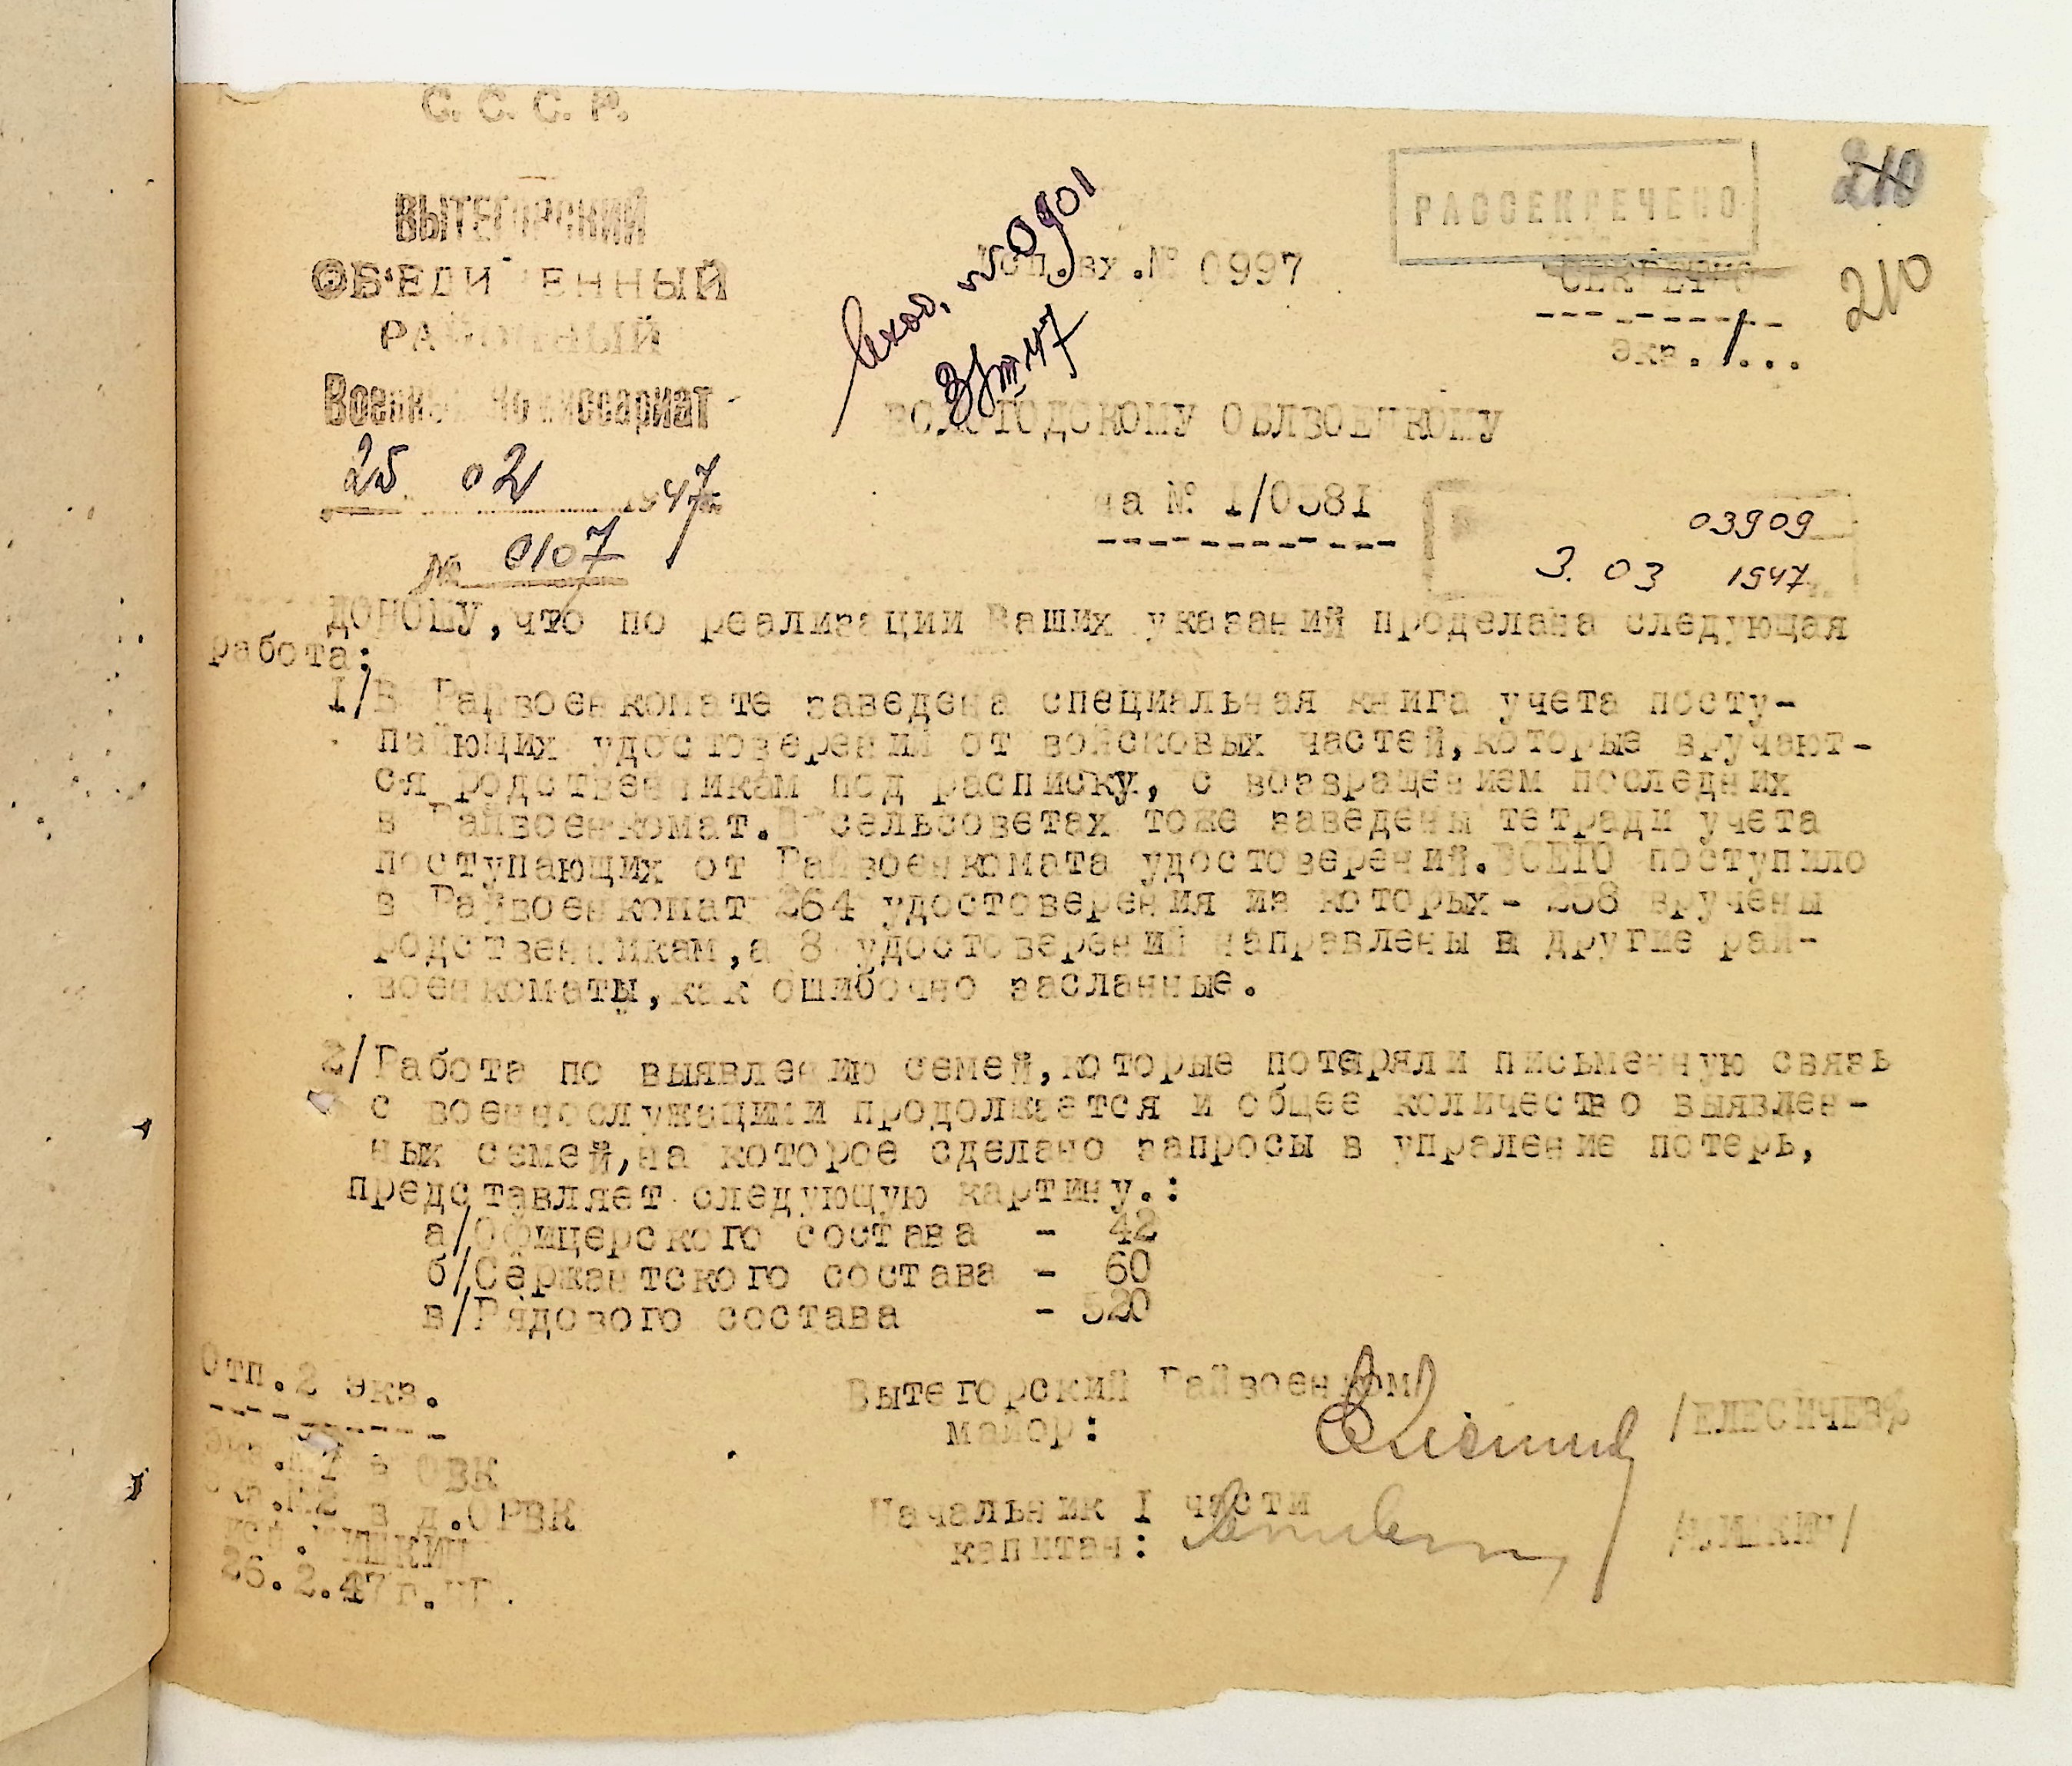 С. С. С. Р.
ВЫТЕГОРСКИЙ
ОБ'ЕДИНЕННЫЙ
РАЙОННЫЙ
Военный Комиссариат
25 02 1947
№ 0107
Вход. №0901
3/III 47
Доп.вх.№ 0997
РАССЕКРЕЧЕНО
СЕКРЕТНО
экз. 1...
210
210
ВОЛОГОДСКОМУ ОБЛВОЕНКОМУ
на № 1/0381
03909
3. 03 1947
ДОНОШУ,что по реализации Ваших указаний проделана следующая
работа:
1/В Райвоенкомате заведена специальная книга учета посту-
пающих удостоверений от войсковых частей,которые вручают-
ся родственникам под расписку, с возвращением последних
в Райвоенкомат.В сельсоветах тоже заведены тетради учета
поступающих от Райвоенкомата удостоверений.ВСЕГО поступило
в Райвоенкомат 264 удостоверения из которых- 258 вручены
родственникам,а 8 удостоверений направлены в другие рай-
военкоматы,как ошибочно засланные.
2/Работа по выявлению семей,которые потеряли письменную связь
с военнослужащими продолжается и общее количество выявлен-
ных семей,на которое сделано запросы в упраление потерь,
представляет следующую картину.:
а/Офицерского состава - 42
б/Сержантского состава - 60
в/Рядового состава - 520
Отп.2 экз.
экз.№1 в ОВК
экз.№2 в д.ОРВК
исп.
26.2.47г.
Вытегорский Райвоенком
майор: /ЕЛЕСИЧЕВ/
Начальник I части
капитан: